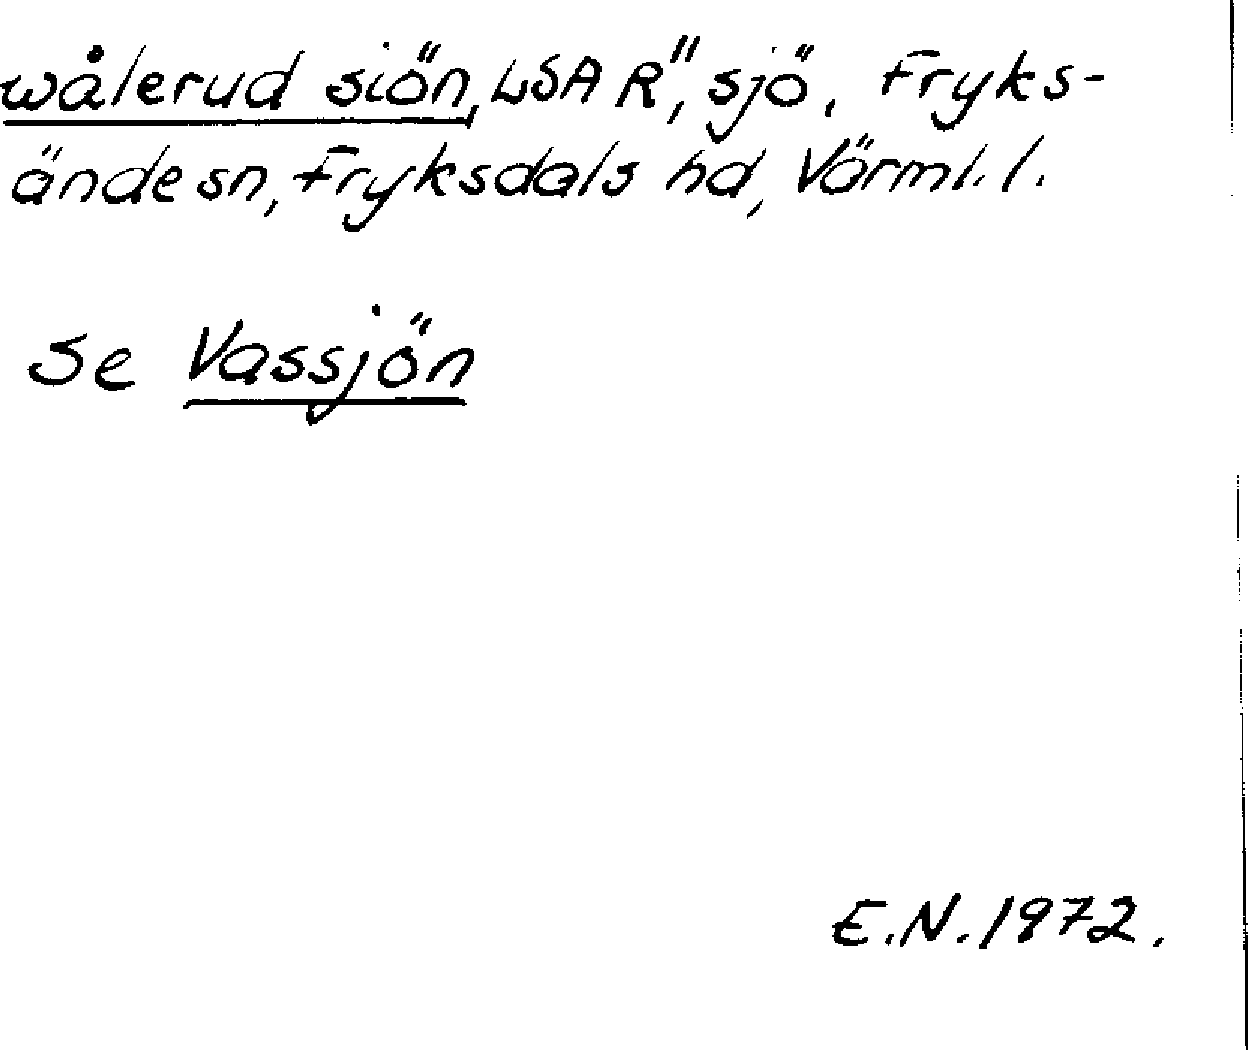 wålerud siön, LSA R", sjö, Fryks-
ände sn, Fryksdals hd, Värml. l.
se Vassjön
E.N. 1972.